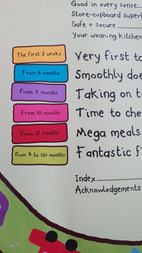 Good in every sense
Store-cupboard
Safe + secure
Your weaning kitchen
The first 2 weeks
Very first
From 6 months
Smoothly
From 9 months
Taking on
From 10 months
Time to
From 12 months
Mega meals
From 7 to 12+ months
Fantastic
Index
Acknowledgements